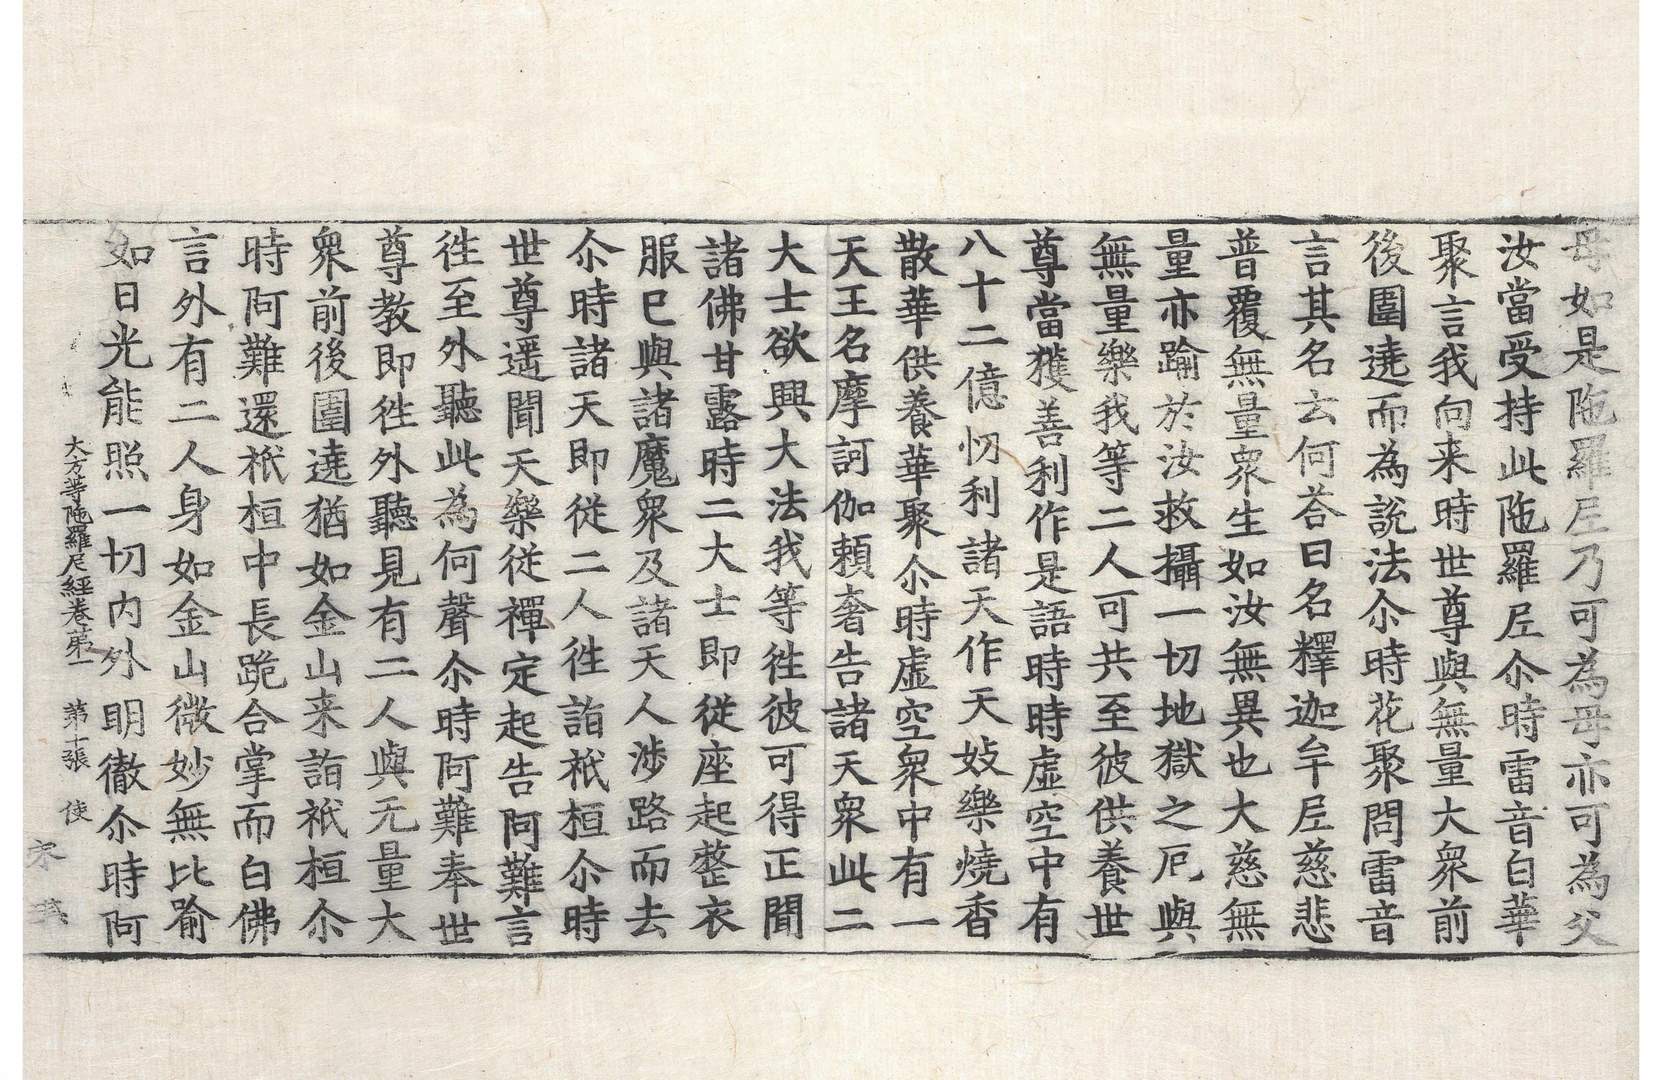 母如是陁羅尼乃可為母亦可為父
汝當受持此陁羅尼尒時雷音白華
聚言我向来時世尊與無量大衆前
後圍遶而為說法尒時花聚問雷音
言其名云何荅曰名釋迦牟尼慈悲
普覆無量衆生如汝無異也大慈無
量亦踰於汝救攝一切地獄之厄與
無量樂我等二人可共至彼供養世
尊當獲善利作是語時時虛空中有
八十二億忉利諸天作天妓樂燒香
散華供養華聚尒時虛空衆中有一
天王名摩訶伽頼奢告諸天衆此二
大士欲興大法我等徃彼可得正聞
諸佛甘露時二大士即從座起整衣
服已與諸魔衆及諸天人涉路而去
尒時諸天即從二人徃詣祇桓尒時
世尊遥聞天樂從禪定起告阿難言
徃至外聽此為何聲尒時阿難奉世
尊教即徃外聽見有二人與无量大
衆前後圍遶猶如金山来詣祇桓尒
時阿難還祇桓中長跪合掌而白佛
言外有二人身如金山微妙無比踰
如日光能照一切内外明徹尒時阿
大方等陁羅尼經卷苐一 第十張 使